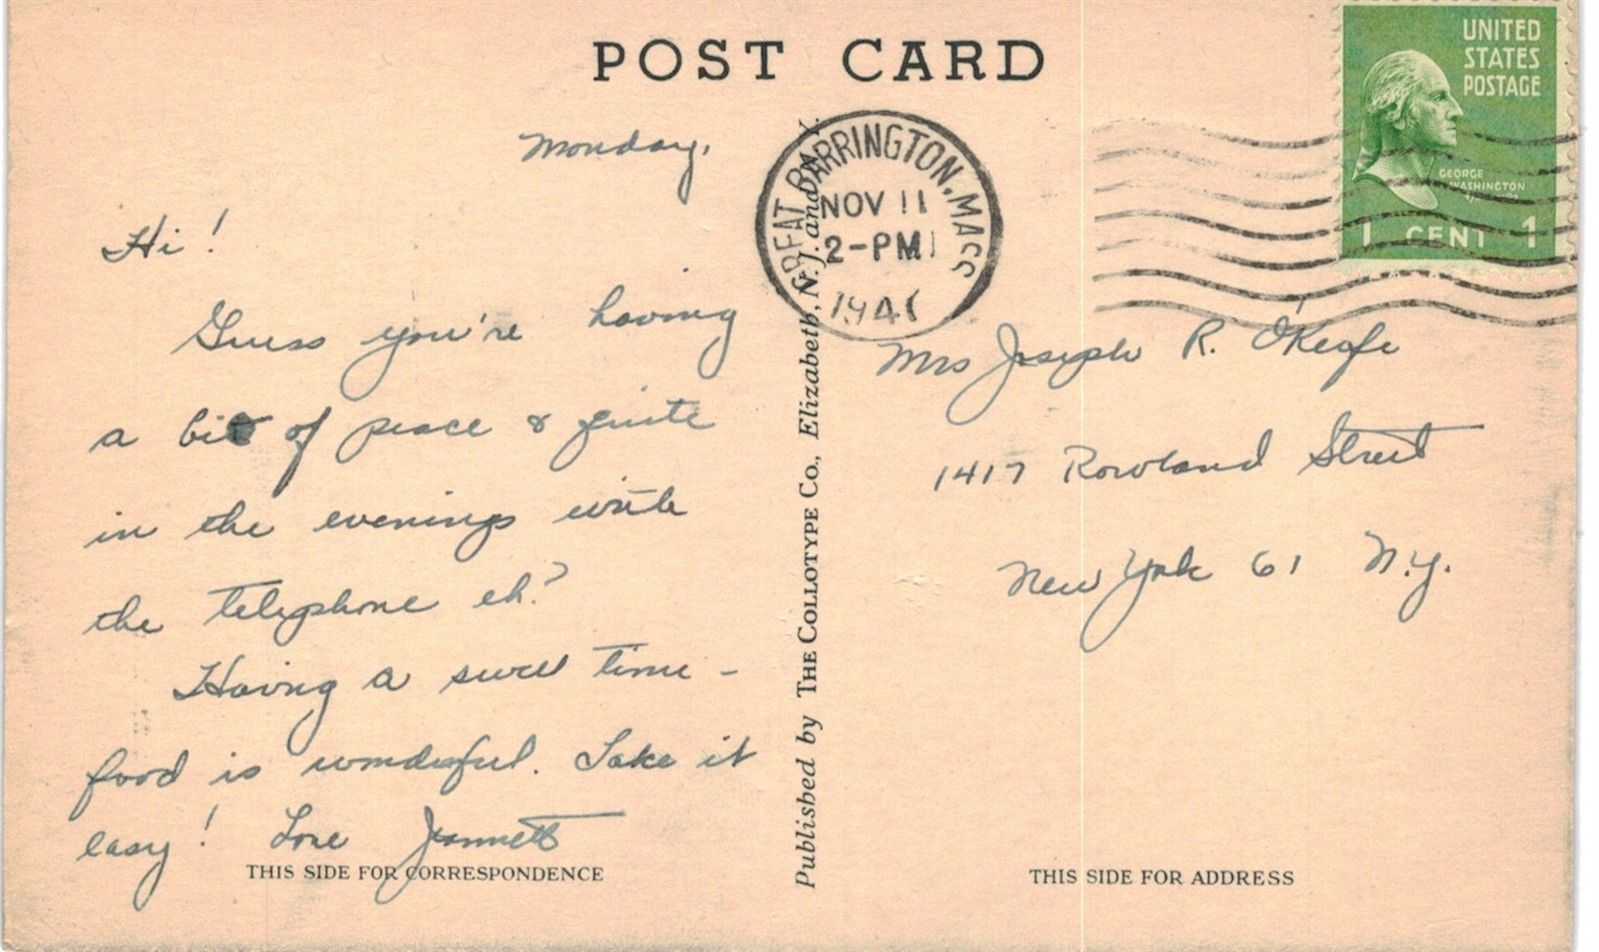 POST CARD
UNITED
STATES
POSTAGE
GEORGE
WASHINGTON
1 CENT 1
GREAT BARRINGTON, MASS
NOV 11
2-PM
Monday,
Hi!
Guess you're having
a bit of peace & quite
in the evenings with
the telephone eh?
Having a swell time -
food is wonderful. Take it
easy! Love Jeannette
THIS SIDE FOR CORRESPONDENCE
Published by THE COLLOTYPE Co., Elizabeth, N. J. and N. Y.
Mrs Joseph R. O'Keefe
1417 Rowland Street
New York 61 N.Y.
THIS SIDE FOR ADDRESS